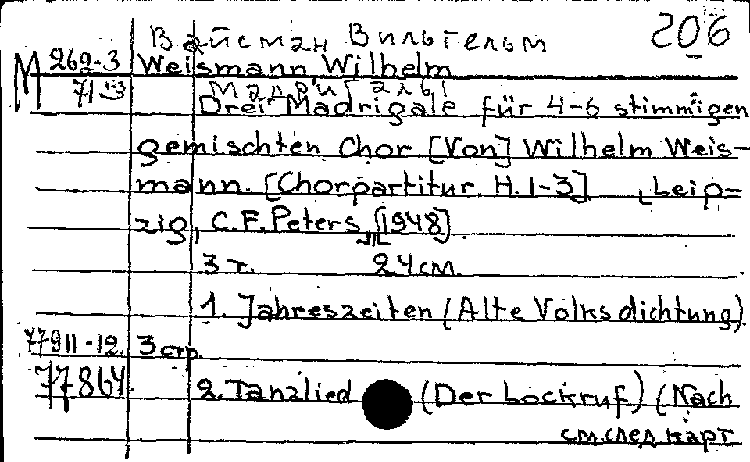 Вайсман Вильгельм 206
М 262-3 Weismann Wilhelm
71 Мадригалы
Drei Madrigale für 4-6 stimmigen
gemischten Chor [Von] Wilhelm Weis-
mann. [Chorpartitur. H. 1-3] Leip-
zig, C. F. Peters, [1948].
3 т. 24 см.
1. Jahreszeiten (Alte Volksdichtung).
77911-12. 3 стр.
77864. 2. Tanzlied (Der Lockruf) (Nach
см. след карт